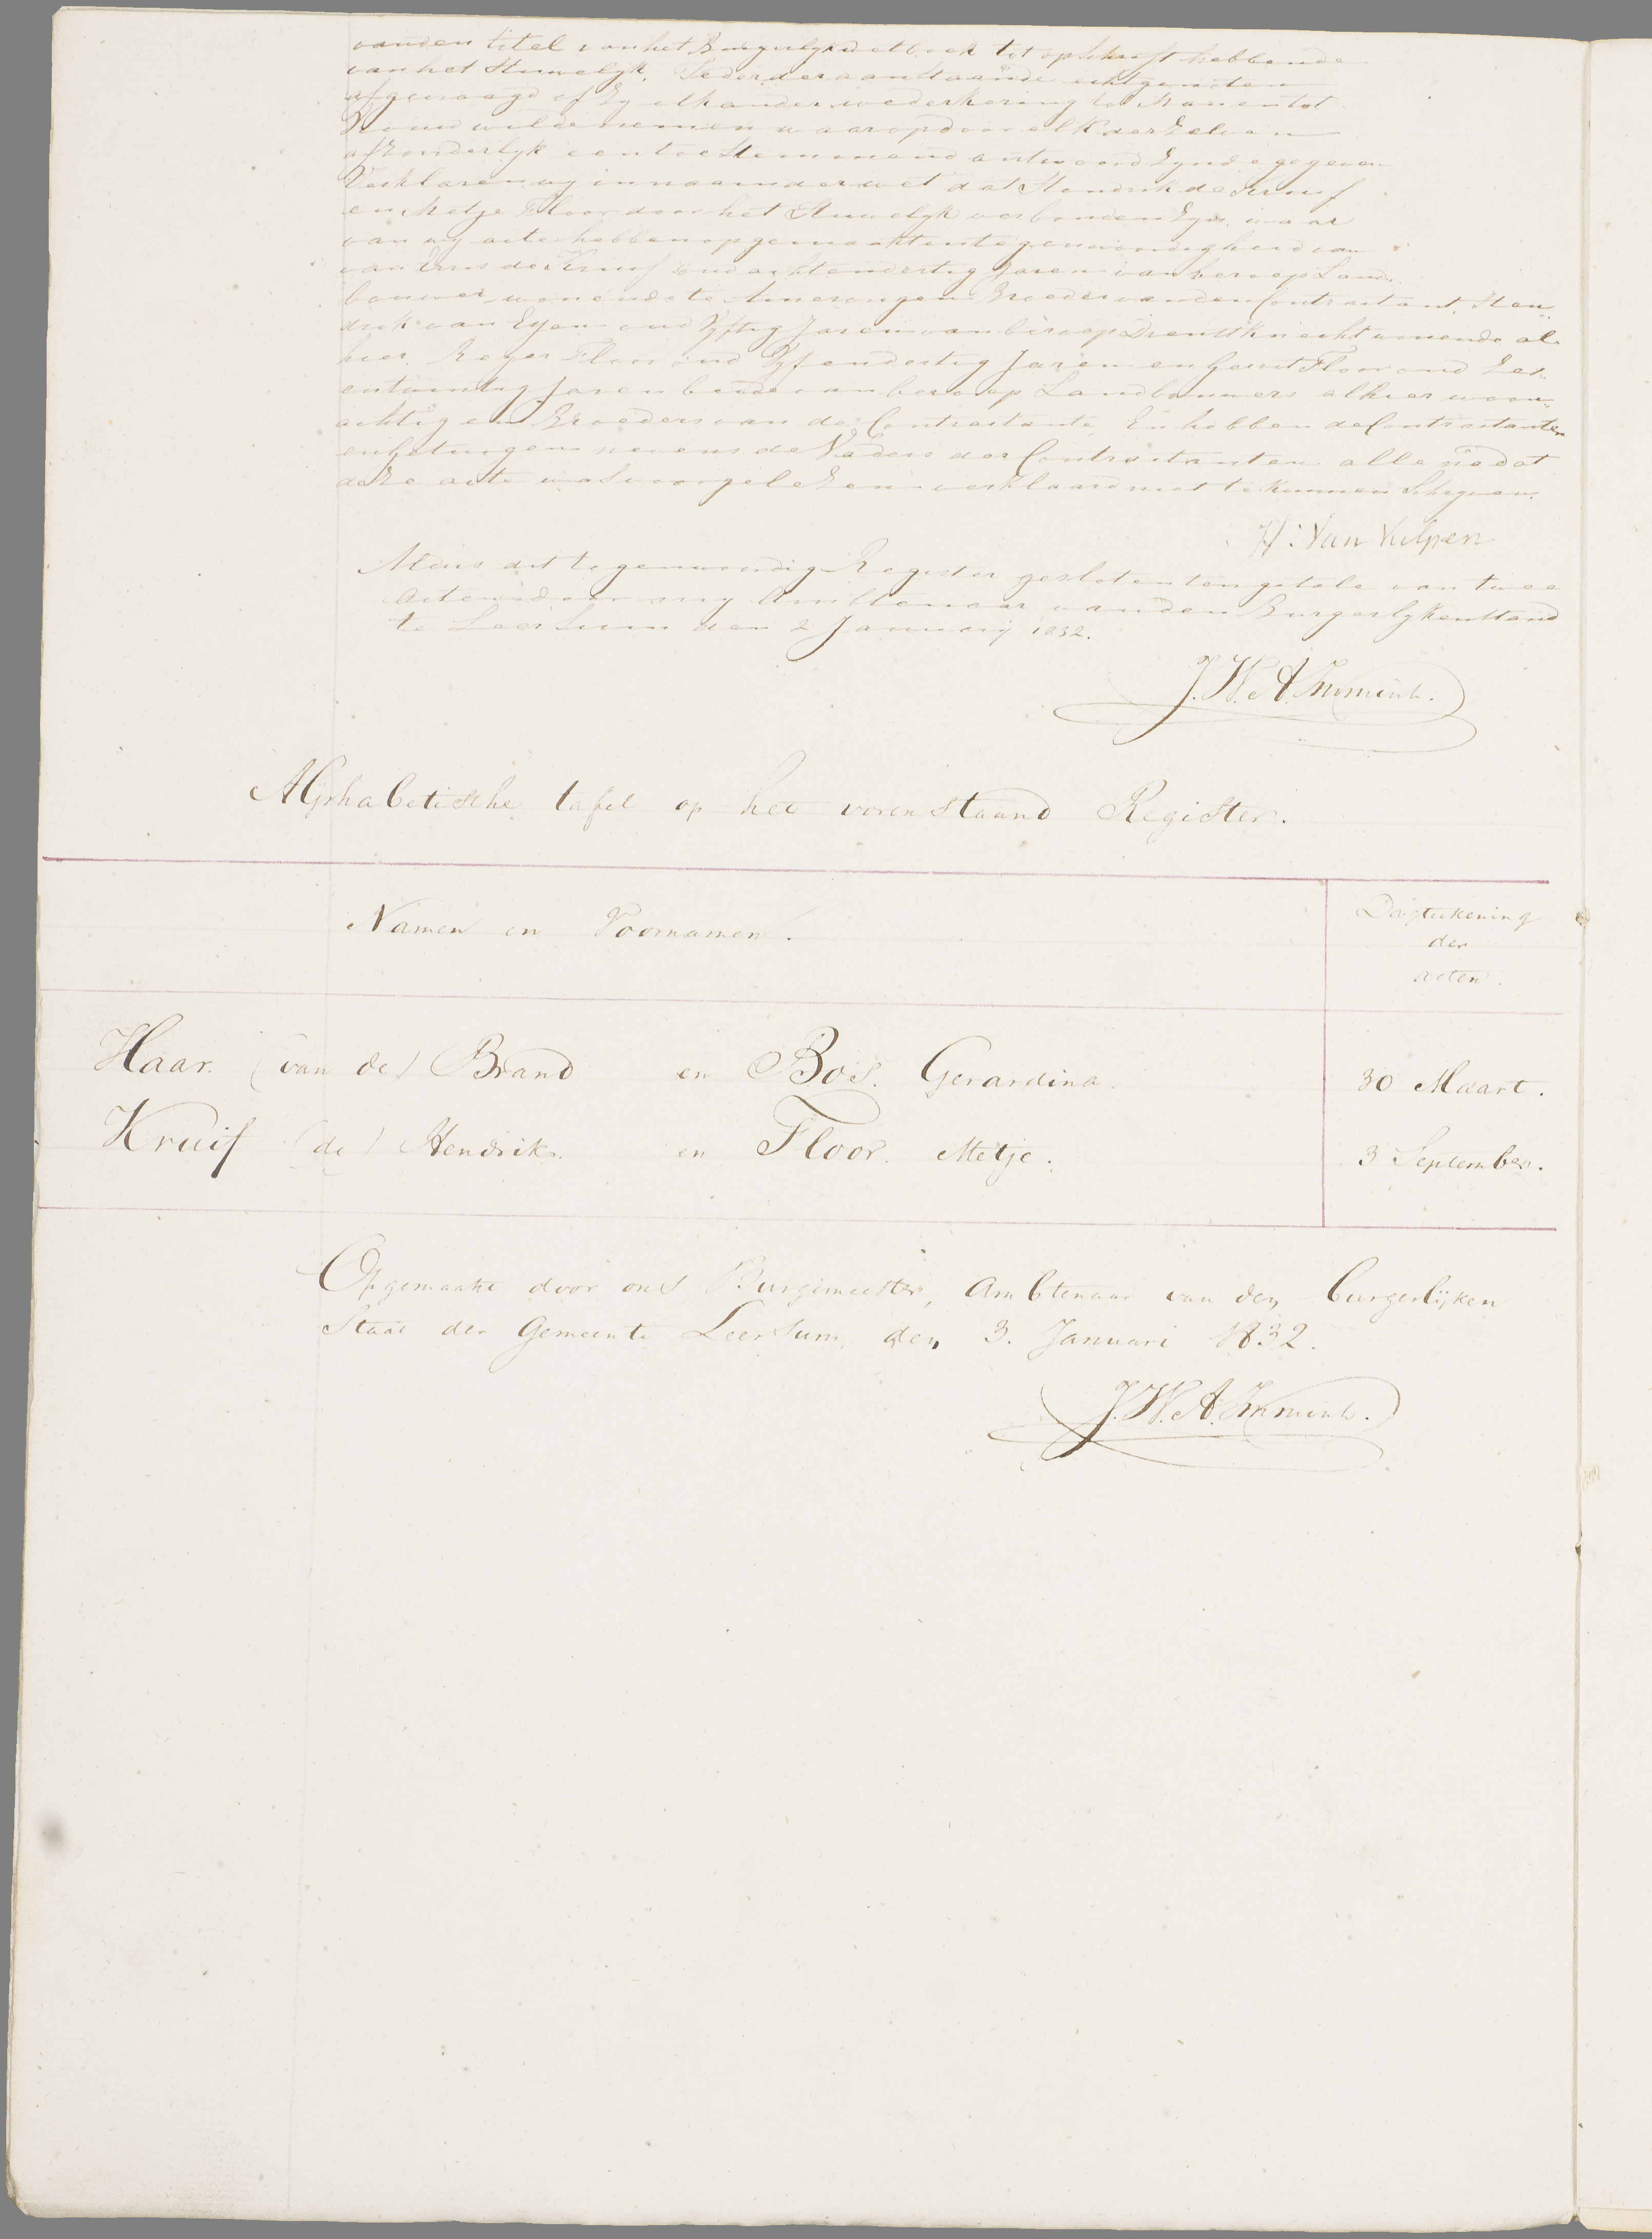 van den titel van het Burgerlyk wetboek tot opschrift hebbende
van het Huwelyk, Ieder der aanstaande echtgenoten
afgevraagd of Zy elkander wederkering tot Man en tot
Vrouw wilde nemen waarop door elk derzelven
afzonderlyk een toestemmend antwoord Zynde gegeven
Verklaren wy in naam der wet dat Hendrik de Kruif
en Metje Floor door het Huwelyk verbonden Zyn, waar
van wy acte hebben opgemaakt in tegenwoordigheid van
van de Kruif oud achtendertig Jaren van beroep Land
bouwer wonende te Amerongen Broeder van den Contractant, Hen
drik van Eyen oud Vyftig Jaren van beroep Dienstknecht wonende al
hier, Reyer Floor oud Vyfendertig Jaren en Gerrit Floor oud Zes
entwintig Jaren beide van beroep Landbouwers alhier woon
achtig en Broeders van de Contractante, En hebben de Contractanten
en getuigen nevens de Vaders der Contractanten alle na dat
deze acte was voorgelezen verklaard niet te kunnen Schryven.
H: Van Vulpen
Aldus dit tegenwoordig Register gesloten ten getale van twee
Acten door my Ambtenaar van den Burgerlyken Stand
te Leersum den 2 January 1832.
J. W. A. Immink.
Alphabetische tafel op het vorenstaand Register.
Namen en Voornamen.
Dagteekening
der
acten.
Haar. (van de) Brand en Bos. Gerardina. 30 Maart.
Kruif (de) Hendrik. en Floor. Metje. 3 September.
Opgemaakt door ons Burgemeester, Ambtenaar van den burgerlijken
Staat der Gemeente Leersum, den 3. Januari 1832.
J. W. A. Immink.